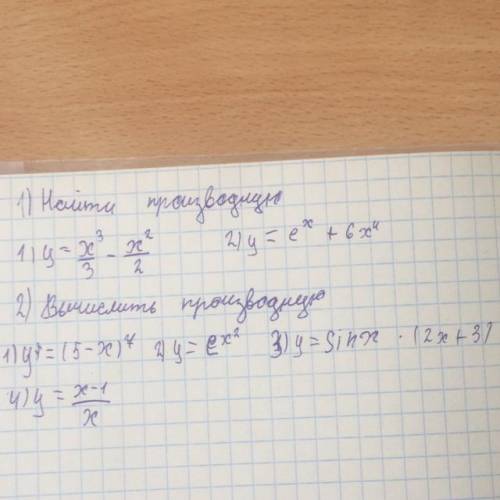 1) Найти производную
1) y = x³/3 - x²/2 2) y = eˣ + 6x⁴
2) Вычислить производную
1) y = (5-x)⁷ 2) y = eˣ² 3) y = sinx · (2x+3)
4) y = x-1/x